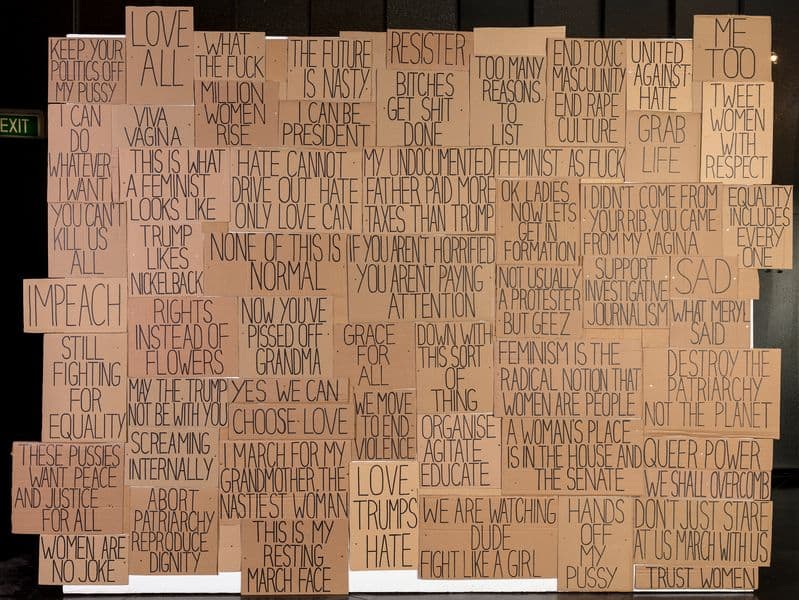 EXIT
KEEP YOUR
POLITICS OFF
MY PUSSY
LOVE
ALL
WHAT
THE FUCK
THE FUTURE
IS NASTY
RESISTER
TOO MANY
REASONS
TO
LIST
END TOXIC
MASCULINITY
END RAPE
CULTURE
UNITED
AGAINST
HATE
ME
TOO
MILLION
WOMEN
RISE
CAN BE
PRESIDENT
BITCHES
GET SHIT
DONE
GRAB
LIFE
TWEET
WOMEN
WITH
RESPECT
I CAN
DO
WHATEVER
I WANT
VIVA
VAGINA
THIS IS WHAT
A FEMINIST
LOOKS LIKE
HATE CANNOT
DRIVE OUT HATE
ONLY LOVE CAN
MY UNDOCUMENTED
FATHER PAID MORE
TAXES THAN TRUMP
FEMINIST AS FUCK
OK LADIES
NOW LETS
GET IN
FORMATION
I DIDN'T COME FROM
YOUR RIB, YOU CAME
FROM MY VAGINA
EQUALITY
INCLUDES
EVERY
ONE
YOU CAN'T
KILL US
ALL
TRUMP
LIKES
NICKELBACK
NONE OF THIS IS
NORMAL
IF YOU AREN'T HORRIFIED
YOU ARENT PAYING
ATTENTION
NOT USUALLY
A PROTESTER
BUT GEEZ
SUPPORT
INVESTIGATIVE
JOURNALISM
SAD
WHAT MERYL
SAID
IMPEACH
RIGHTS
INSTEAD OF
FLOWERS
NOW YOU'VE
PISSED OFF
GRANDMA
GRACE
FOR
ALL
DOWN WITH
THIS SORT
OF
THING
FEMINISM IS THE
RADICAL NOTION THAT
WOMEN ARE PEOPLE
DESTROY THE
PATRIARCHY
NOT THE PLANET
STILL
FIGHTING
FOR
EQUALITY
MAY THE TRUMP
NOT BE WITH YOU
YES WE CAN
CHOOSE LOVE
WE MOVE
TO END
VIOLENCE
ORGANISE
AGITATE
EDUCATE
A WOMAN'S PLACE
IS IN THE HOUSE AND
THE SENATE
QUEER POWER
WE SHALL OVERCOMB
THESE PUSSIES
WANT PEACE
AND JUSTICE
FOR ALL
SCREAMING
INTERNALLY
I MARCH FOR MY
GRANDMOTHER, THE
NASTIEST WOMAN
LOVE
TRUMPS
HATE
WE ARE WATCHING
DUDE
FIGHT LIKE A GIRL
HANDS
OFF
MY
PUSSY
DON'T JUST STARE
AT US MARCH WITH US
ABORT
PATRIARCHY
REPRODUCE
DIGNITY
THIS IS MY
RESTING
MARCH FACE
WOMEN ARE
NO JOKE
TRUST WOMEN